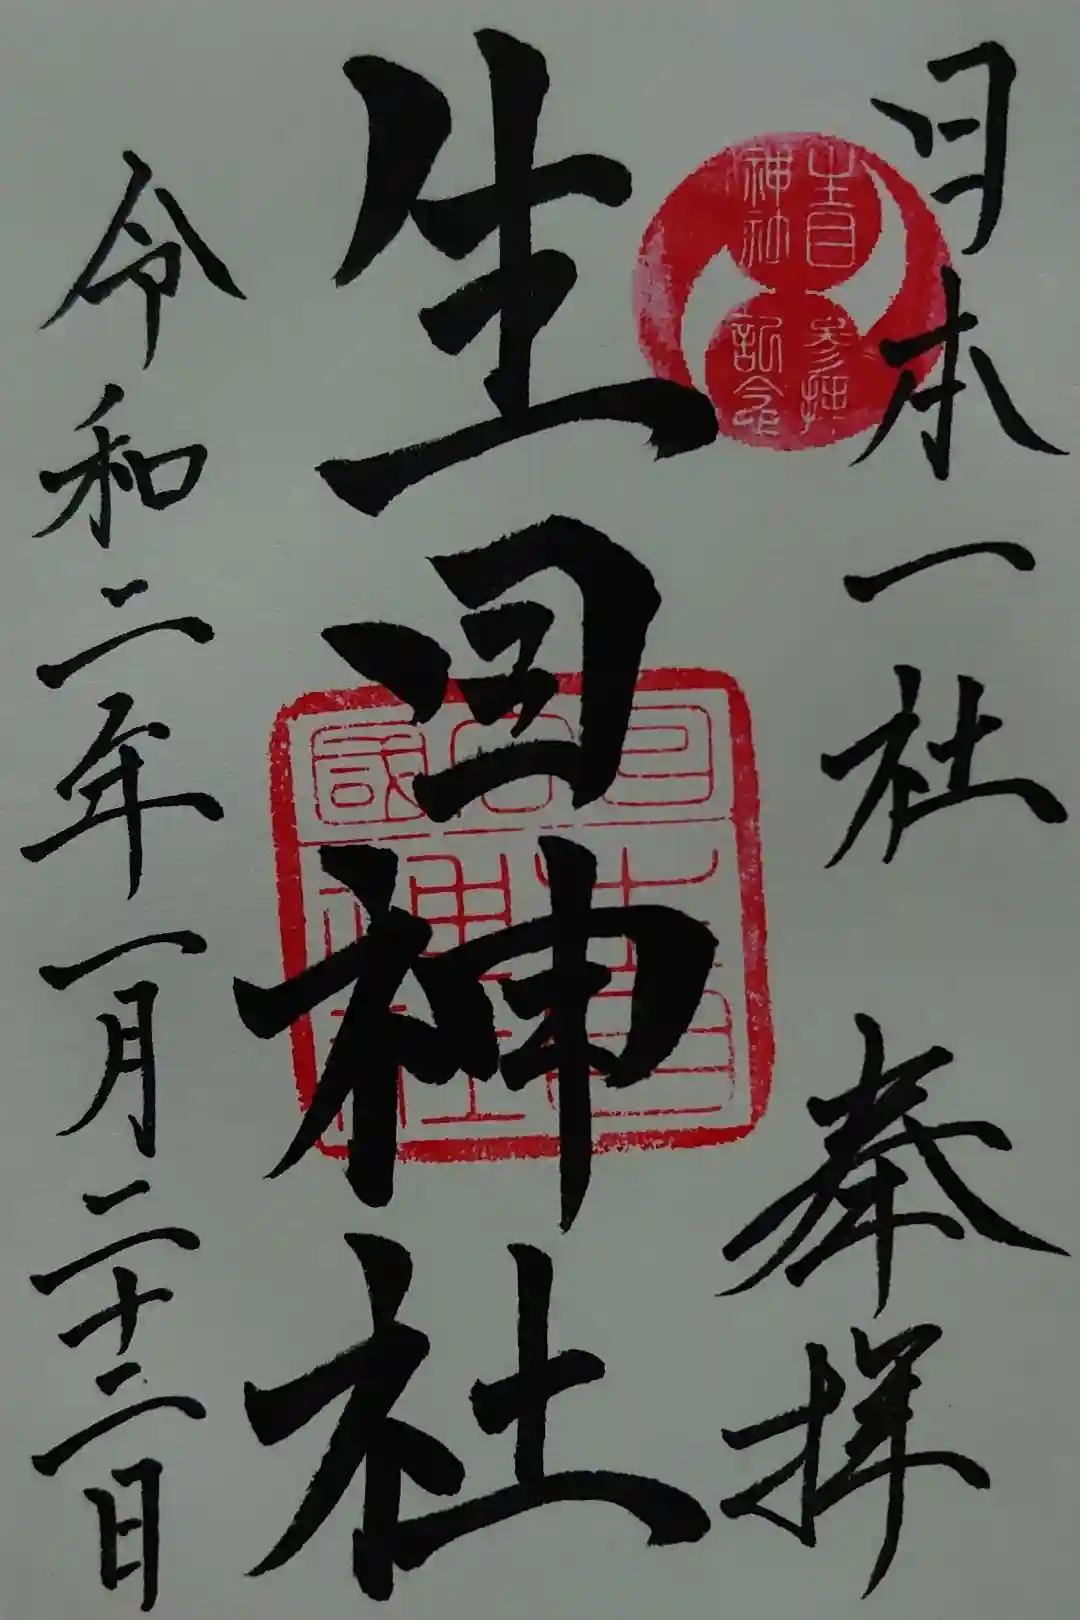 日本一社 奉拝
生目神社
参拝記念
生目神社
令和二年一月二十二日